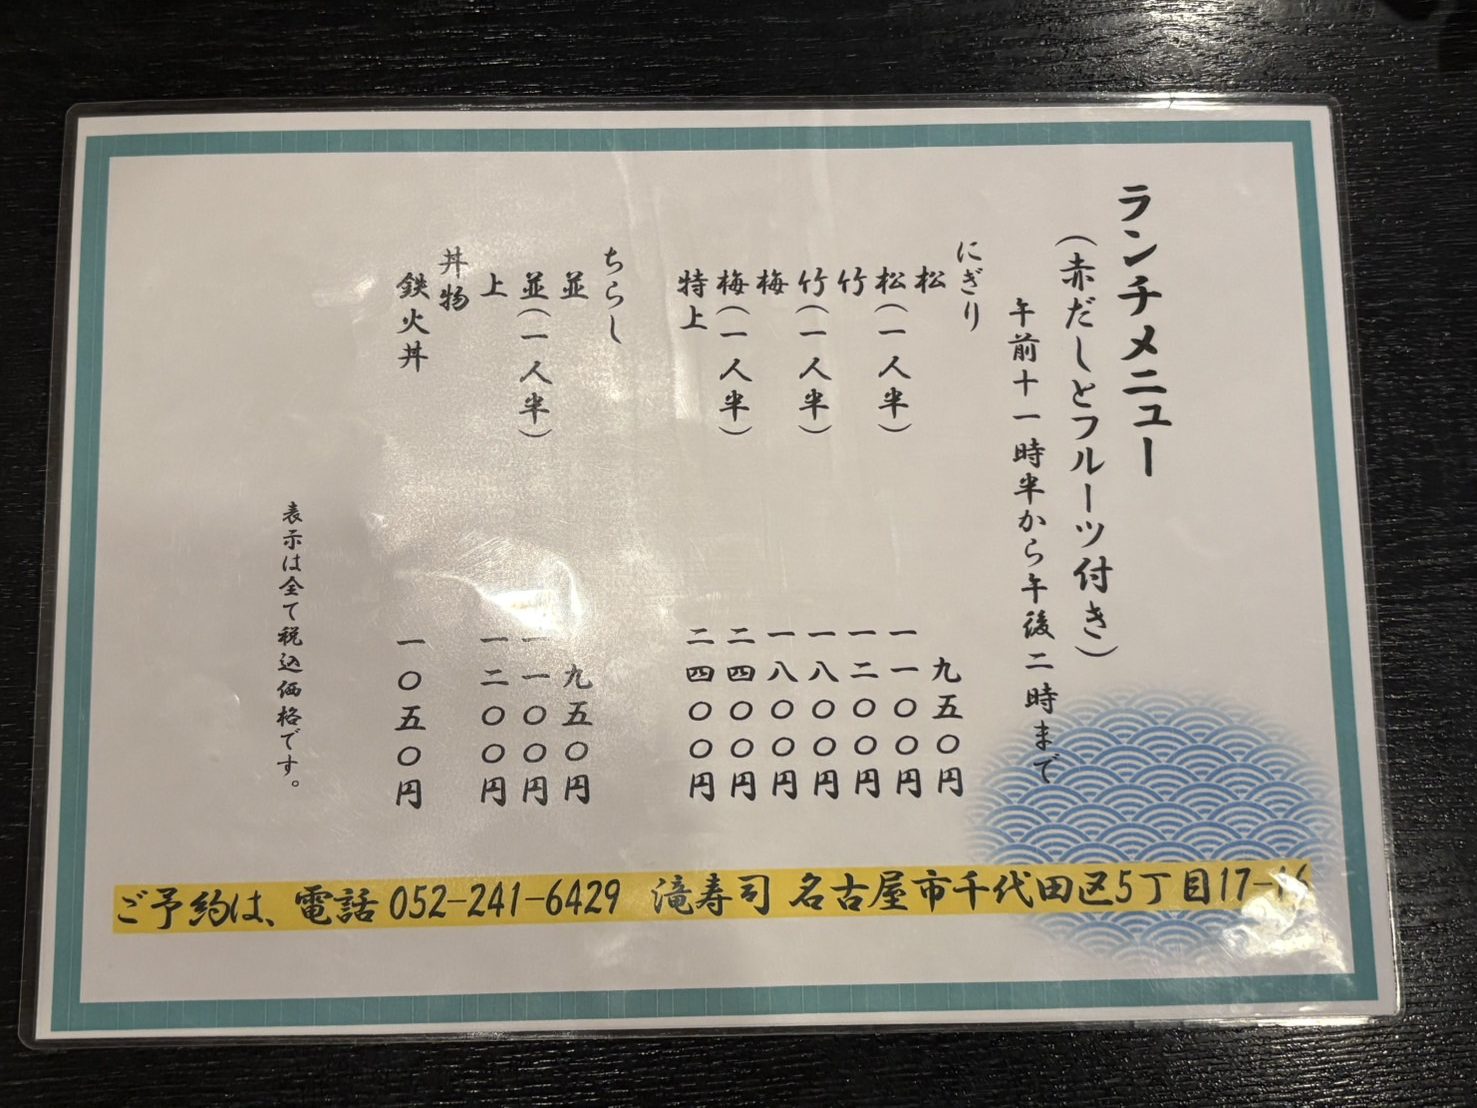 ランチメニュー
（赤だしとフルーツ付き）
午前十一時半から午後二時まで
にぎり
松 九五〇円
松（一人半） 一一〇〇円
竹 一二〇〇円
竹（一人半） 一八〇〇円
梅 一八〇〇円
梅（一人半） 二四〇〇円
特上 二四〇〇円
ちらし
並 九五〇円
並（一人半） 一一〇〇円
上 一二〇〇円
丼物
鉄火丼 一〇五〇円
表示は全て税込価格です。
ご予約は、電話 052-241-6429 滝寿司 名古屋市千代田区5丁目17-16